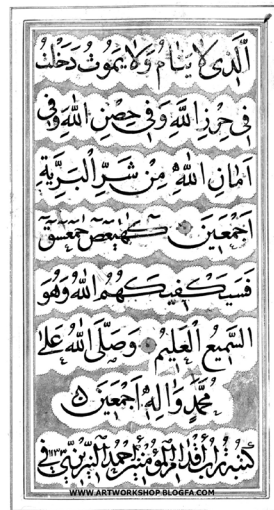 الَّذِي لَا يَنَامُ وَلَا يَمُوتُ دَخَلْتُ
فِي حِرْزِ اللَّهِ وَفِي حِصْنِ اللَّهِ وَفِي
اَمَانِ اللَّهِ مِنْ شَرِّ الْبَرِيَّةِ
اَجْمَعِينَ كهيعص حمعسق
فَسَيَكْفِيكَهُمُ اللَّهُ وَهُوَ
السَّمِيعُ الْعَلِيمُ وَصَلَّى اللَّهُ عَلَى
مُحَمَّدٍ وَآلِهِ اَجْمَعِينَ
كتبه تراب أقدام المؤمنين احمد النيريزي في
WWW.ARTWORKSHOP.BLOGFA.COM